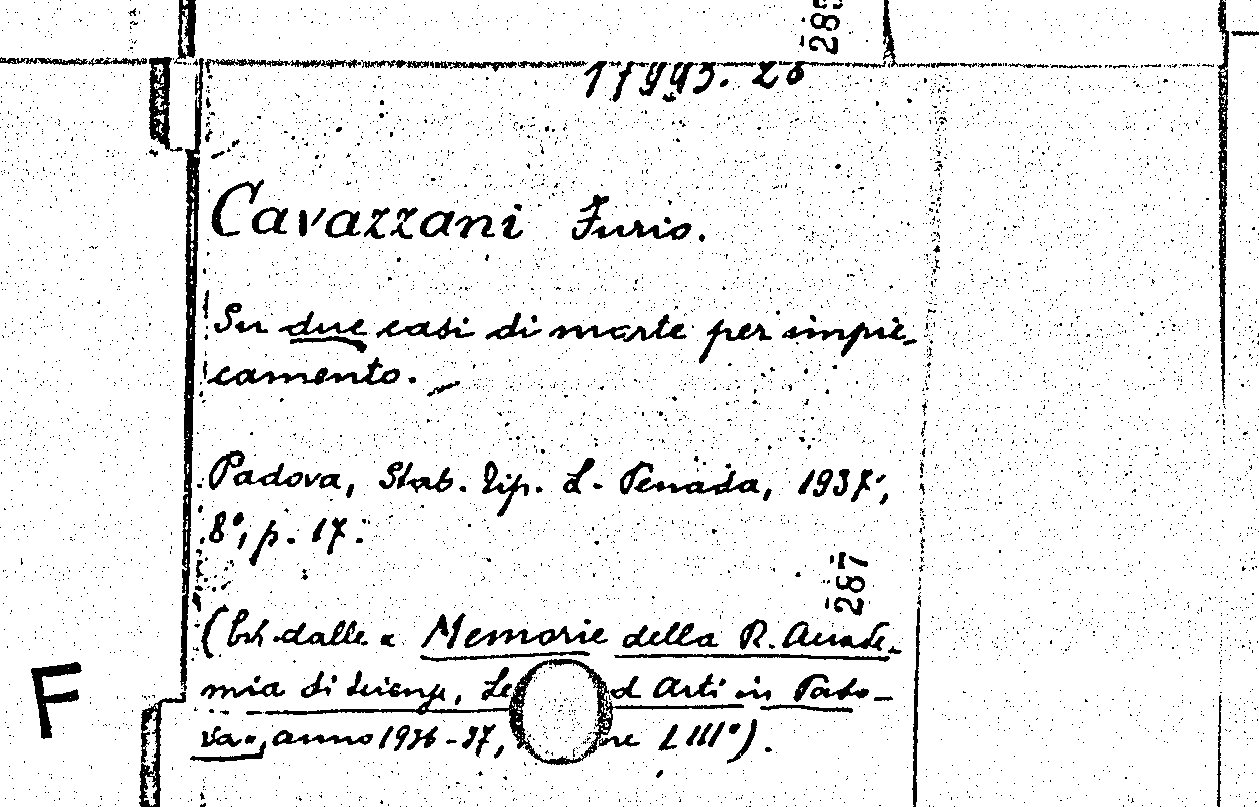 285
17993. 26
Cavazzani Furio.
Su due casi di morte per impic-
camento.
Padova, Stab. Tip. L. Penada, 1937,
8°, p. 17.
287
(Estr. dalle « Memorie della R. Accade-
mia di Scienze, Le d Arti in Pado-
va», anno 1936-37, ne LIII°).
F